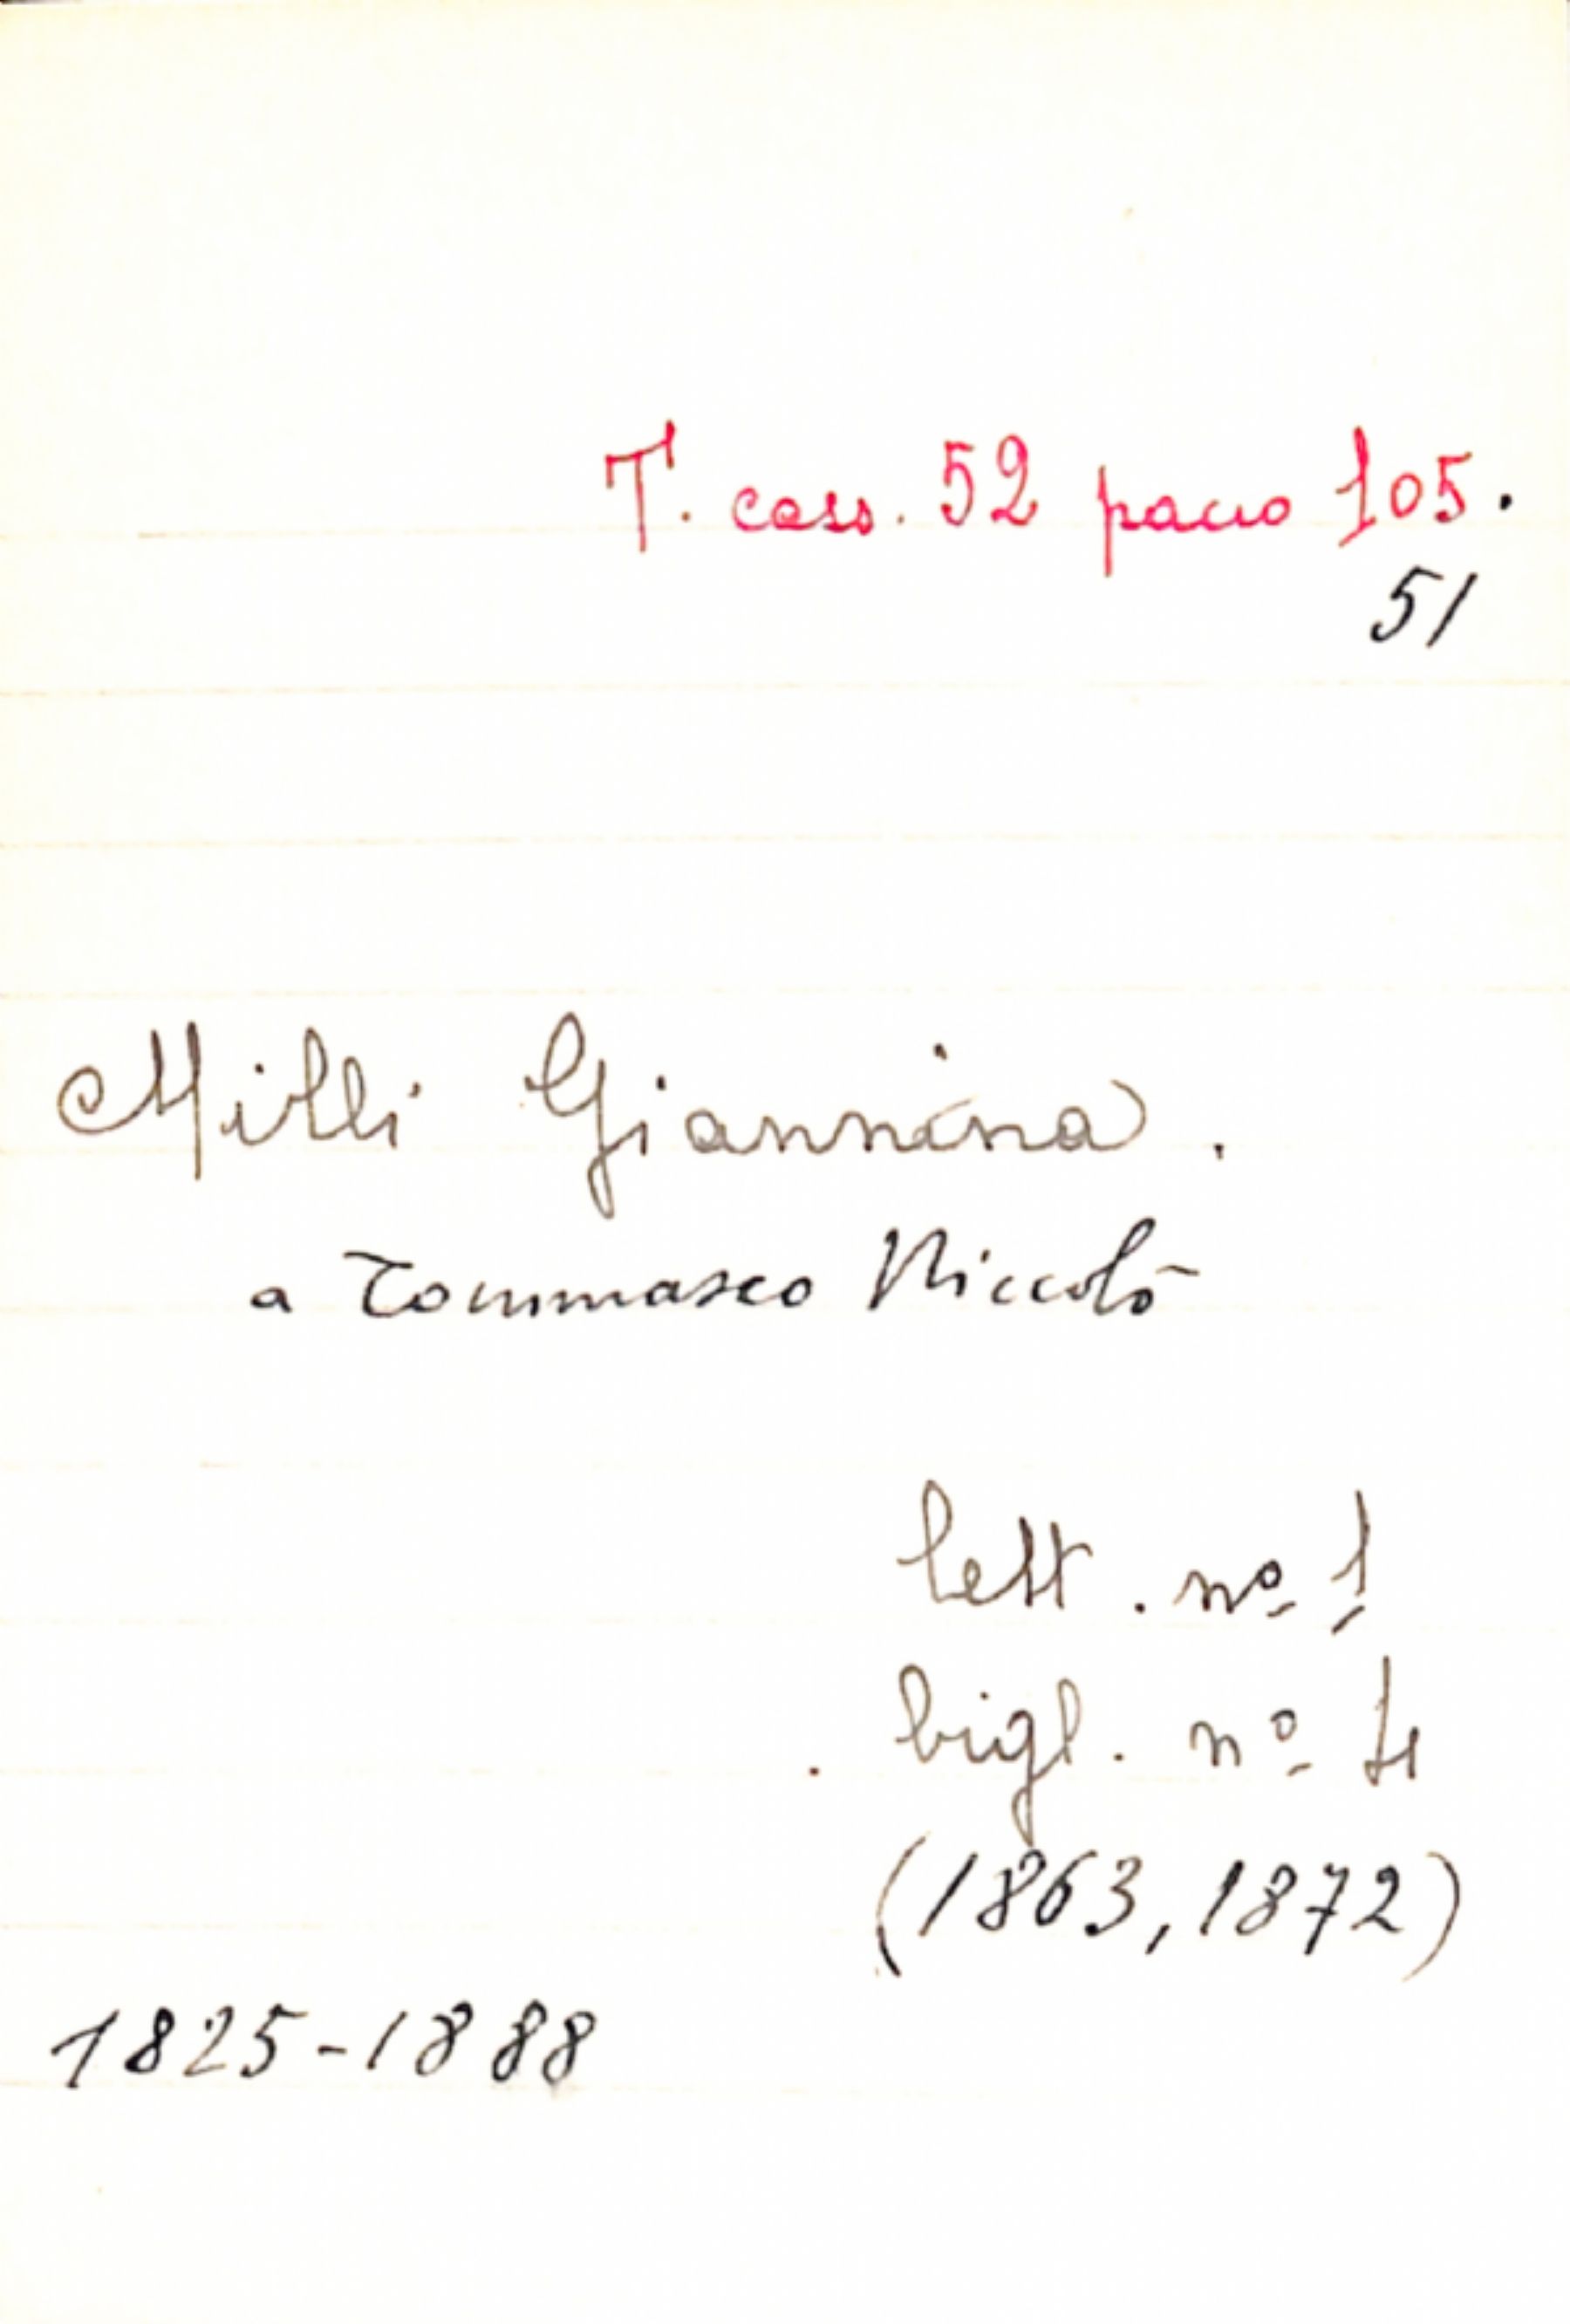 T. cass. 52 pacco 105.
51
Milli Giannina.
a Tommaseo Niccolò
lett. nº 1
bigl. nº 4
(1863, 1872)
1825-1888